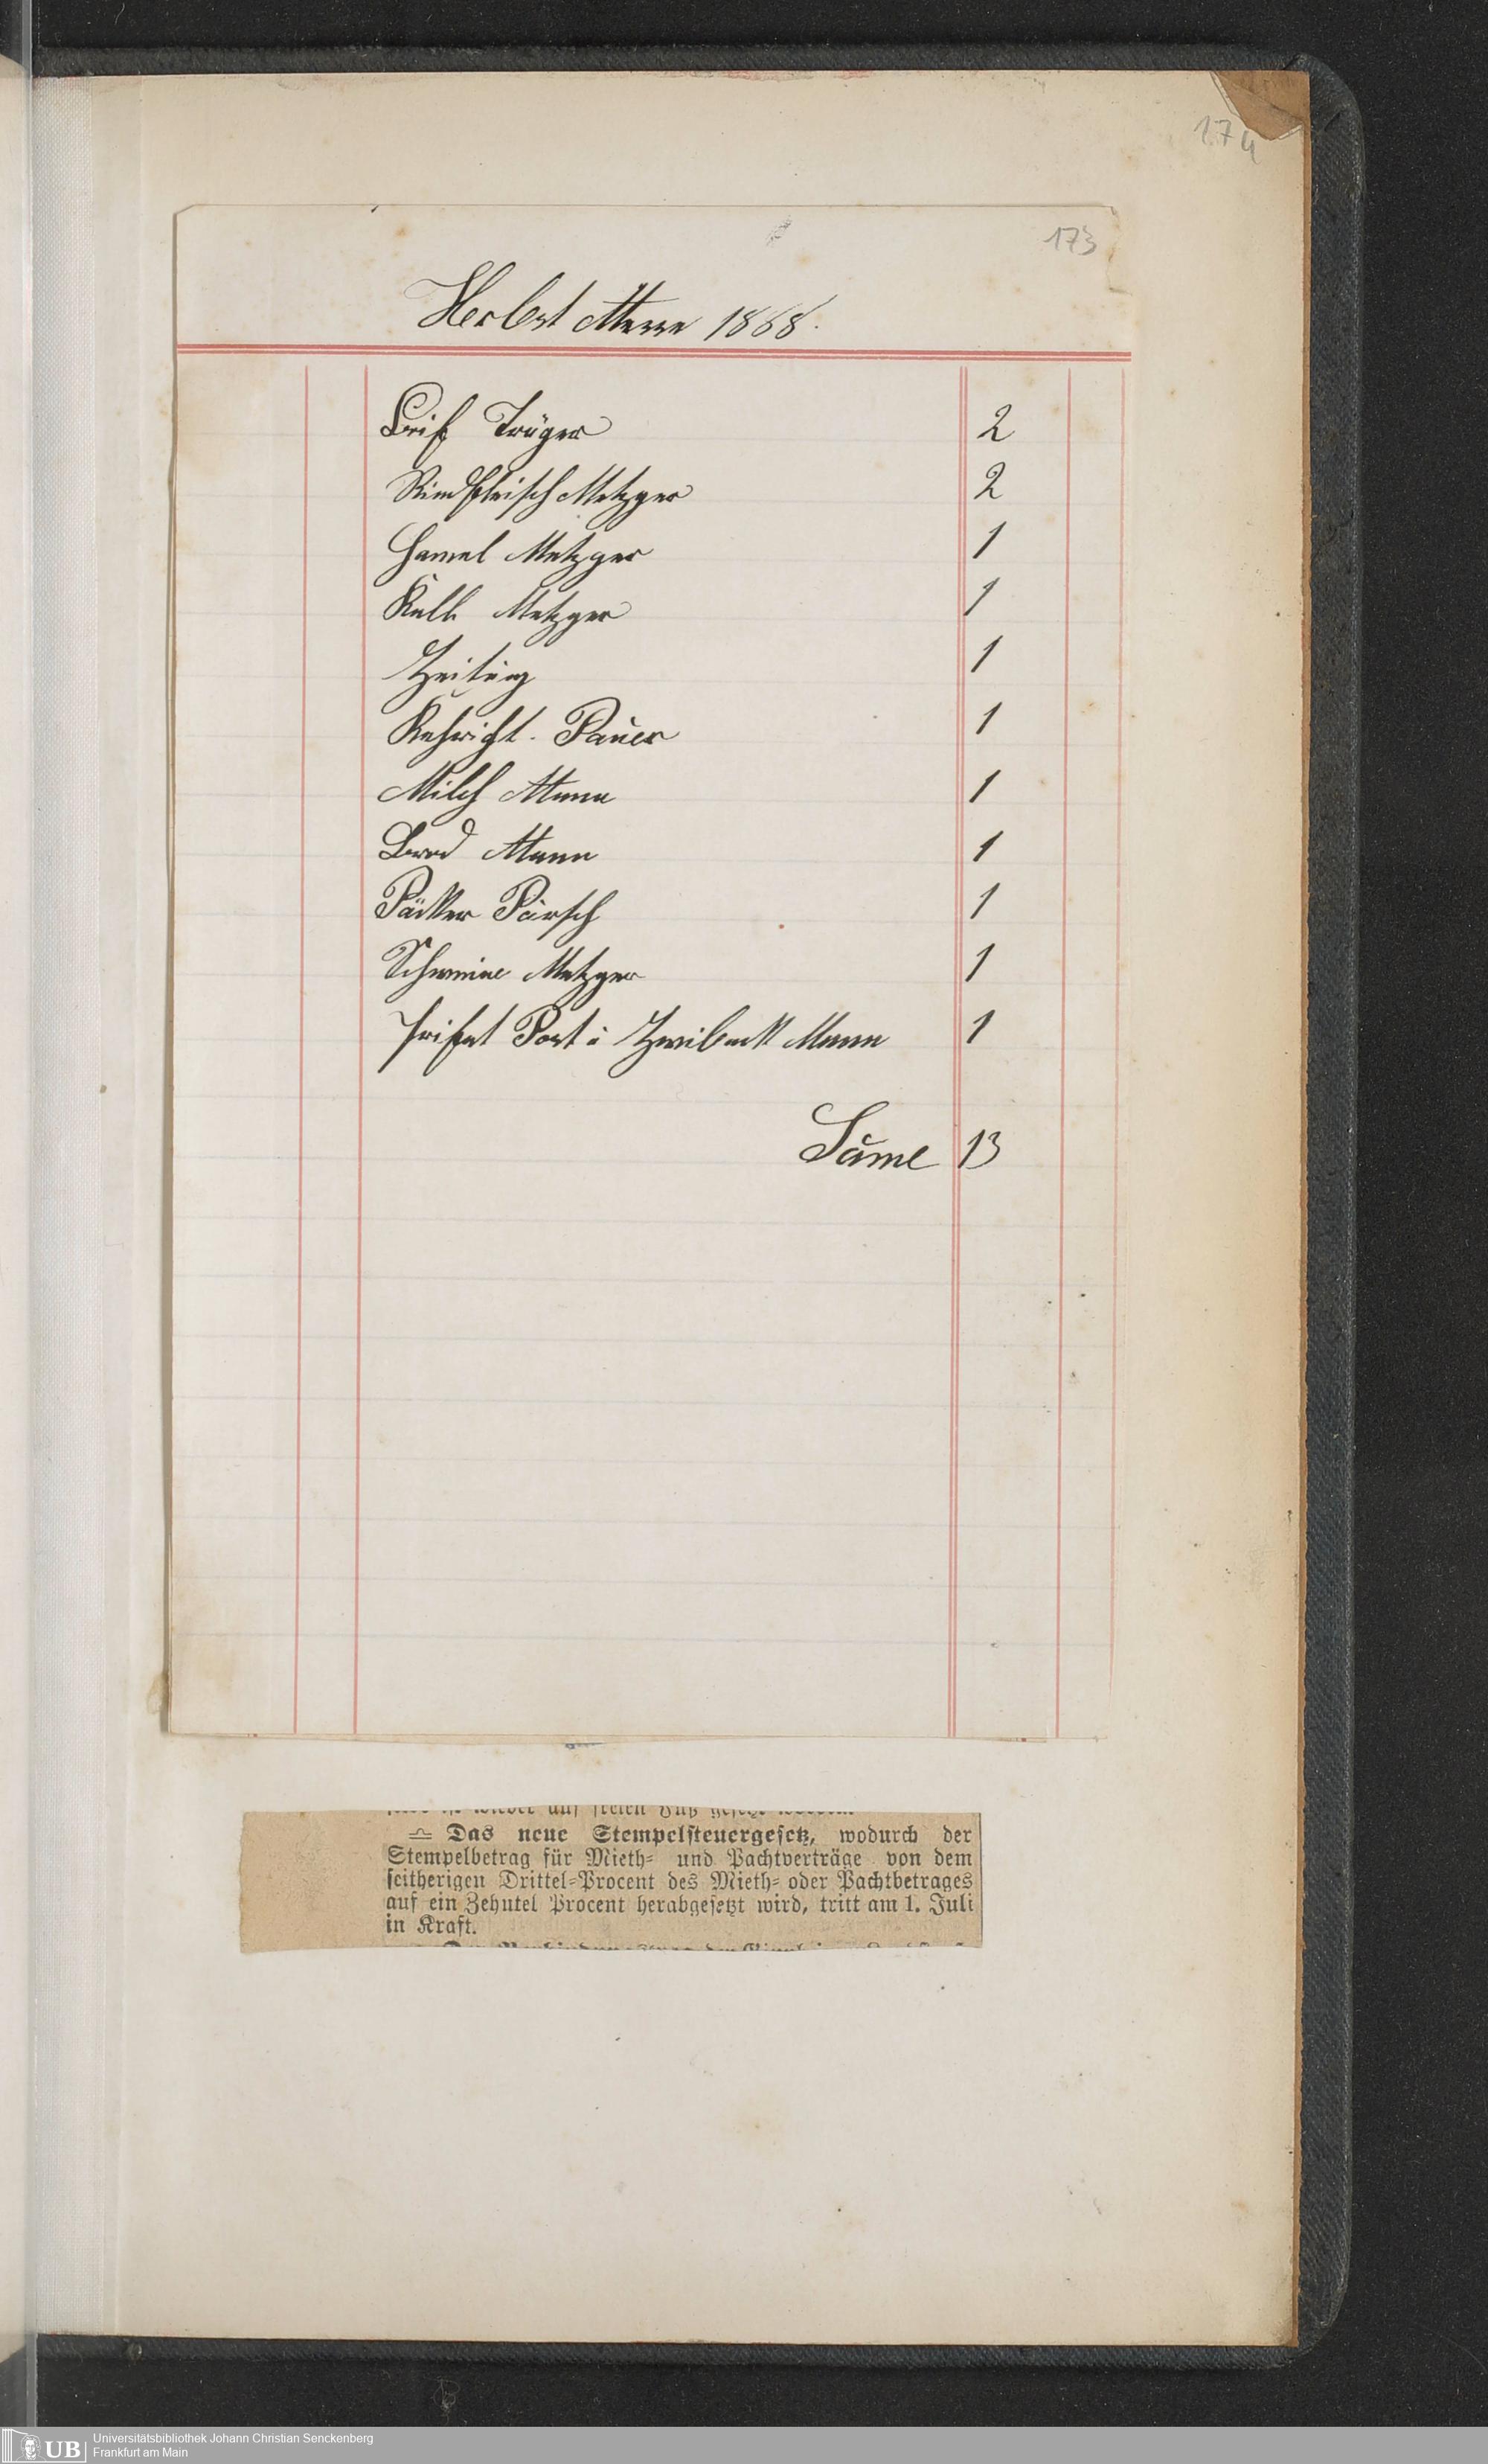 174
173
Herbst Messe 1868.
Brif Träger 2
Rindfleisch Metzger 2
Hamel Metzger 1
Kalb Metzger 1
Zeitung 1
Kehricht. Pauer 1
Milch Mann 1
Brod Mann 1
Päcker Pursch 1
Schweine Metzger 1
Prifat Post u Zwiback Mann 1
Sume 13
wieder auf freien Fuß gesetzt worden.
Das neue Stempelsteuergesetz, wodurch der
Stempelbetrag für Mieth- und Pachtverträge von dem
seitherigen Drittel-Procent des Mieth- oder Pachtbetrages
auf ein Zehntel Procent herabgesetzt wird, tritt am 1. Juli
in Kraft.
UB
Universitätsbibliothek Johann Christian Senckenberg
Frankfurt am Main